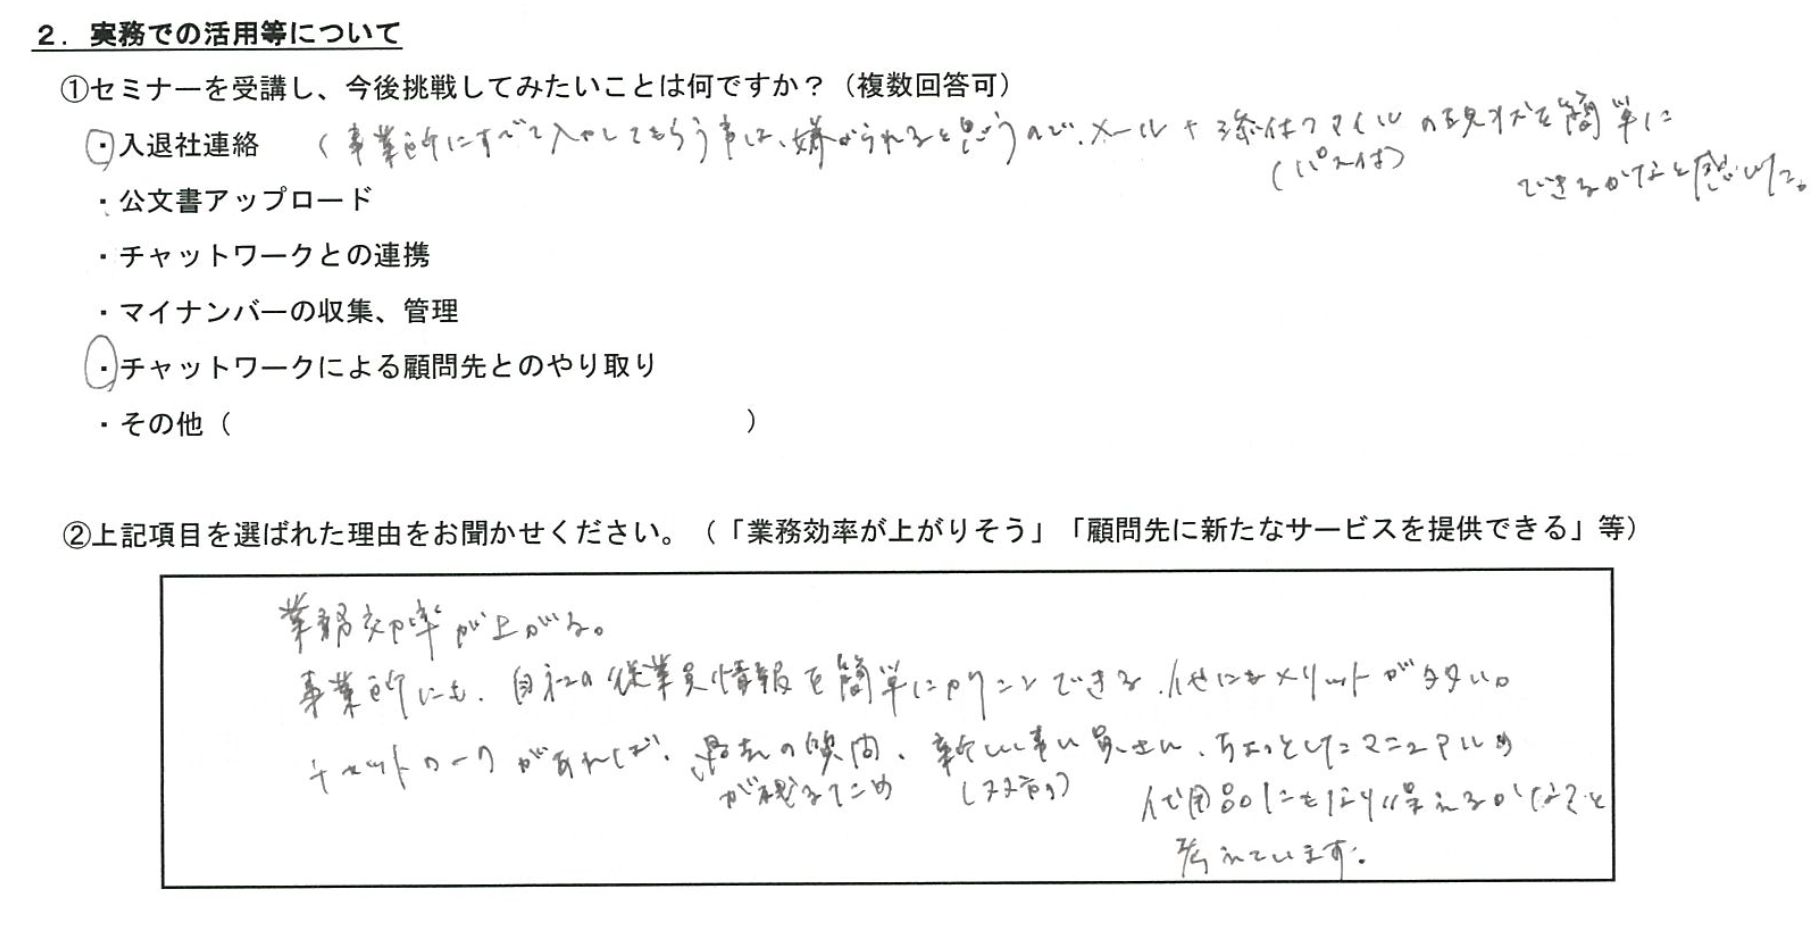 ２．実務での活用等について
①セミナーを受講し、今後挑戦してみたいことは何ですか？（複数回答可）
・入退社連絡 （事業所にすべて入力してもらう事は、嫌がられると思うので、メール＋添付ファイルの現状を簡単に
（パス付）
できるかなと感じた。
・公文書アップロード
・チャットワークとの連携
・マイナンバーの収集、管理
・チャットワークによる顧問先とのやり取り
・その他（　　　　　　　　　　　　　　　　　　）
②上記項目を選ばれた理由をお聞かせください。（「業務効率が上がりそう」「顧問先に新たなサービスを提供できる」等）
業務効率が上がる。
事業所にも、自社の従業員情報を簡単に できる、他にもメリットが多い。
チャットワークがあれば、過去の質問、新しい事務員さん、ちょっとしたマニュアルの
が残るため （双方）
代用品にもなり得えるかなって
考えています。